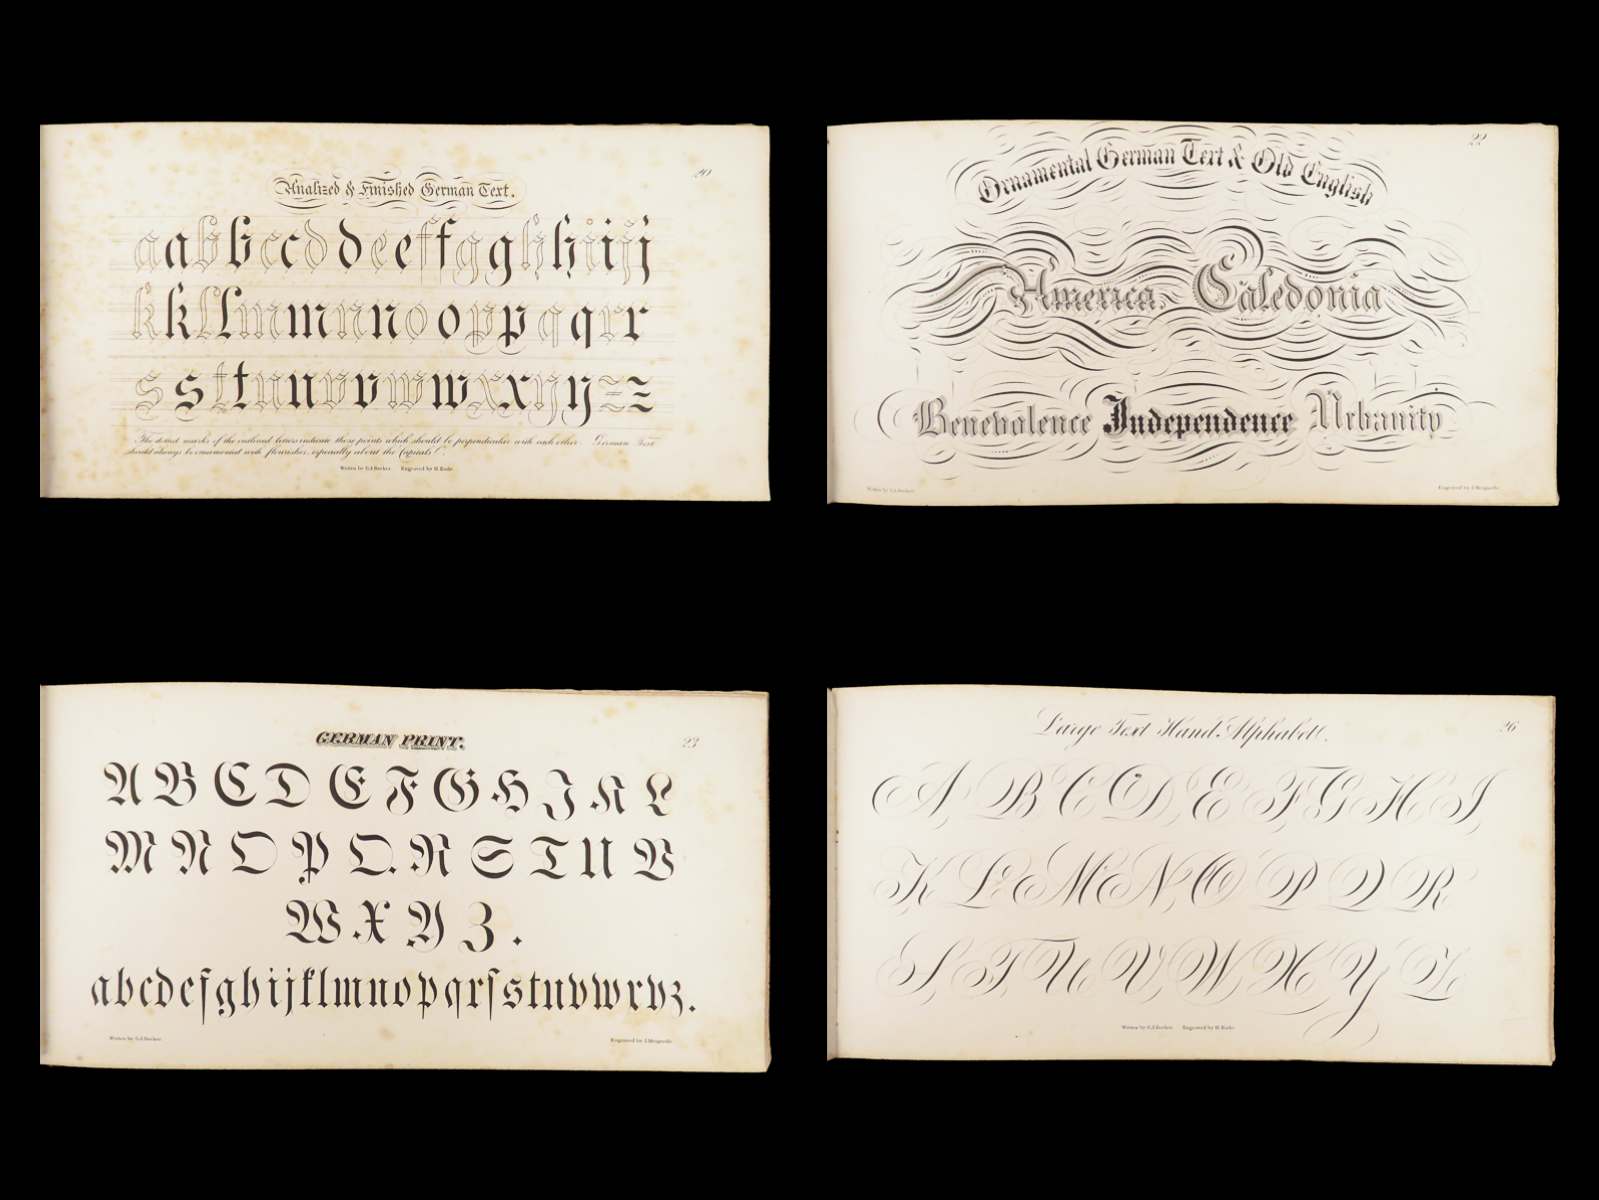 20
Analized & Finished German Text.
a a b b c c d d e e f f g g h h i i j j
k k l l m m n n o o p p q q r r
s s t t u u v v w w x x y y z z
The dotted marks of the outlined letters indicate those points which should be perpendicular with each other. German Text
should always be ornamented with flourishes, especially about the Capitals &c.
Written by G.J. Becker. Engraved by H. Knabe
22
Ornamental German Text & Old English
America, Caledonia
Benevolence Independence Urbanity
Written by G.J. Becker. Engraved by J. Mesguelle
GERMAN PRINT.
23
A B C D E F G H J K L
M N O P Q R S T U V
W X Y Z.
abcdefghijklmnopqrſstuvwxyz.
Written by G.J. Becker. Engraved by J. Mesguelle
Large Text Hand Alphabet.
26
A, B C D, E F, G H I,
K L M N, O P Q R
S, T U V, W X Y Z
Written by G.J. Becker. Engraved by